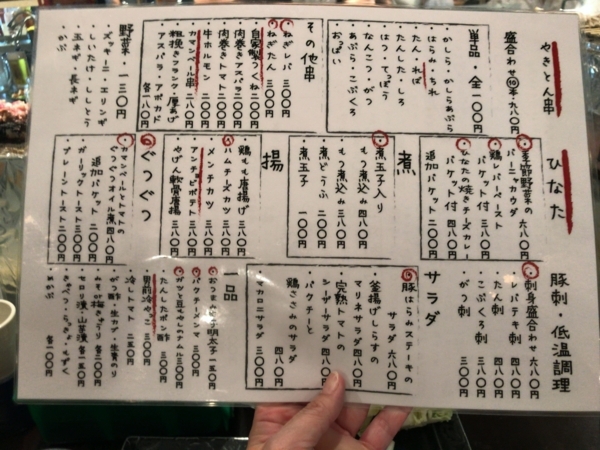 やきとん串
盛合わせ⑩本・九八〇円
単品・全一〇〇円
・かしら・かしらあぶら
・はらみ・ちれ
・たん・れば
・たんした・しろ
・はつ・てっぽう
・なんこつ・がつ
・あぶら・こぶくろ
・おっぱい
その他串
・ねぎレバ 一三〇円
・ねぎたん 三〇〇円
・自家製つくね 二〇〇円
・肉巻きアスパラ 二八〇円
・肉巻きトマト 二八〇円
・牛ホルモン 二八〇円
・カマンベール串 二八〇円
・粗挽きフランク・厚あげ
・アスパラ・アボカド
各一八〇円
野菜・一三〇円
・ズッキーニ・エリンギ
・しいたけ・ししとう
・玉ネギ・長ネギ
・かぶ
ひなた
・季節野菜の
バーニャカウダ 六八〇円
・鶏レバーペースト
バケット付 三八〇円
・ひなたの焼きチーズカレー
バケット付 四八〇円
追加バケット 二〇〇円
煮
・煮玉子入り
もつ煮込み 四八〇円
・もつ煮込み 三八〇円
・煮どうふ 二〇〇円
・煮玉子 一〇〇円
揚
・鶏もも唐揚げ 三八〇円
・ハムチーズカツ 四八〇円
・メンチカツ 四八〇円
・アンチョビポテト 三八〇円
・やげん軟骨唐揚 三八〇円
ぐつぐつ
・カマンベールとトマトの
ぐつぐつオイル煮 四八〇円
追加バケット 二〇〇円
・ガーリックトースト 三〇〇円
・プレーントースト 二〇〇円
豚刺・低温調理
・刺身盛合わせ 六八〇円
・レバテキ刺 四八〇円
・たん刺 四八〇円
・こぶくろ刺 四八〇円
・がつ刺 三〇〇円
サラダ
・豚はらみステーキの
サラダ 六八〇円
・釜揚げしらすの
マリネサラダ 四八〇円
・完熟トマトの
シーザーサラダ 四八〇円
・パクチーと
鶏ささみのサラダ
四八〇円
・マカロニサラダ 三〇〇円
一品
・おつまみ明太子 一五〇円
・パクチーポンマ 三〇〇円
・がつと豆もやしのナムル 三〇〇円
・たんたたポン酢 三〇〇円
・男前冷やっこ 三〇〇円
・冷トマト 二五〇円
・がつ酢・生カブ・生青のり
・ねぎ梅きゅうり 各二〇〇円
・セロリ漬・山菜漬 各一五〇円
・めかぶ 各一〇〇円